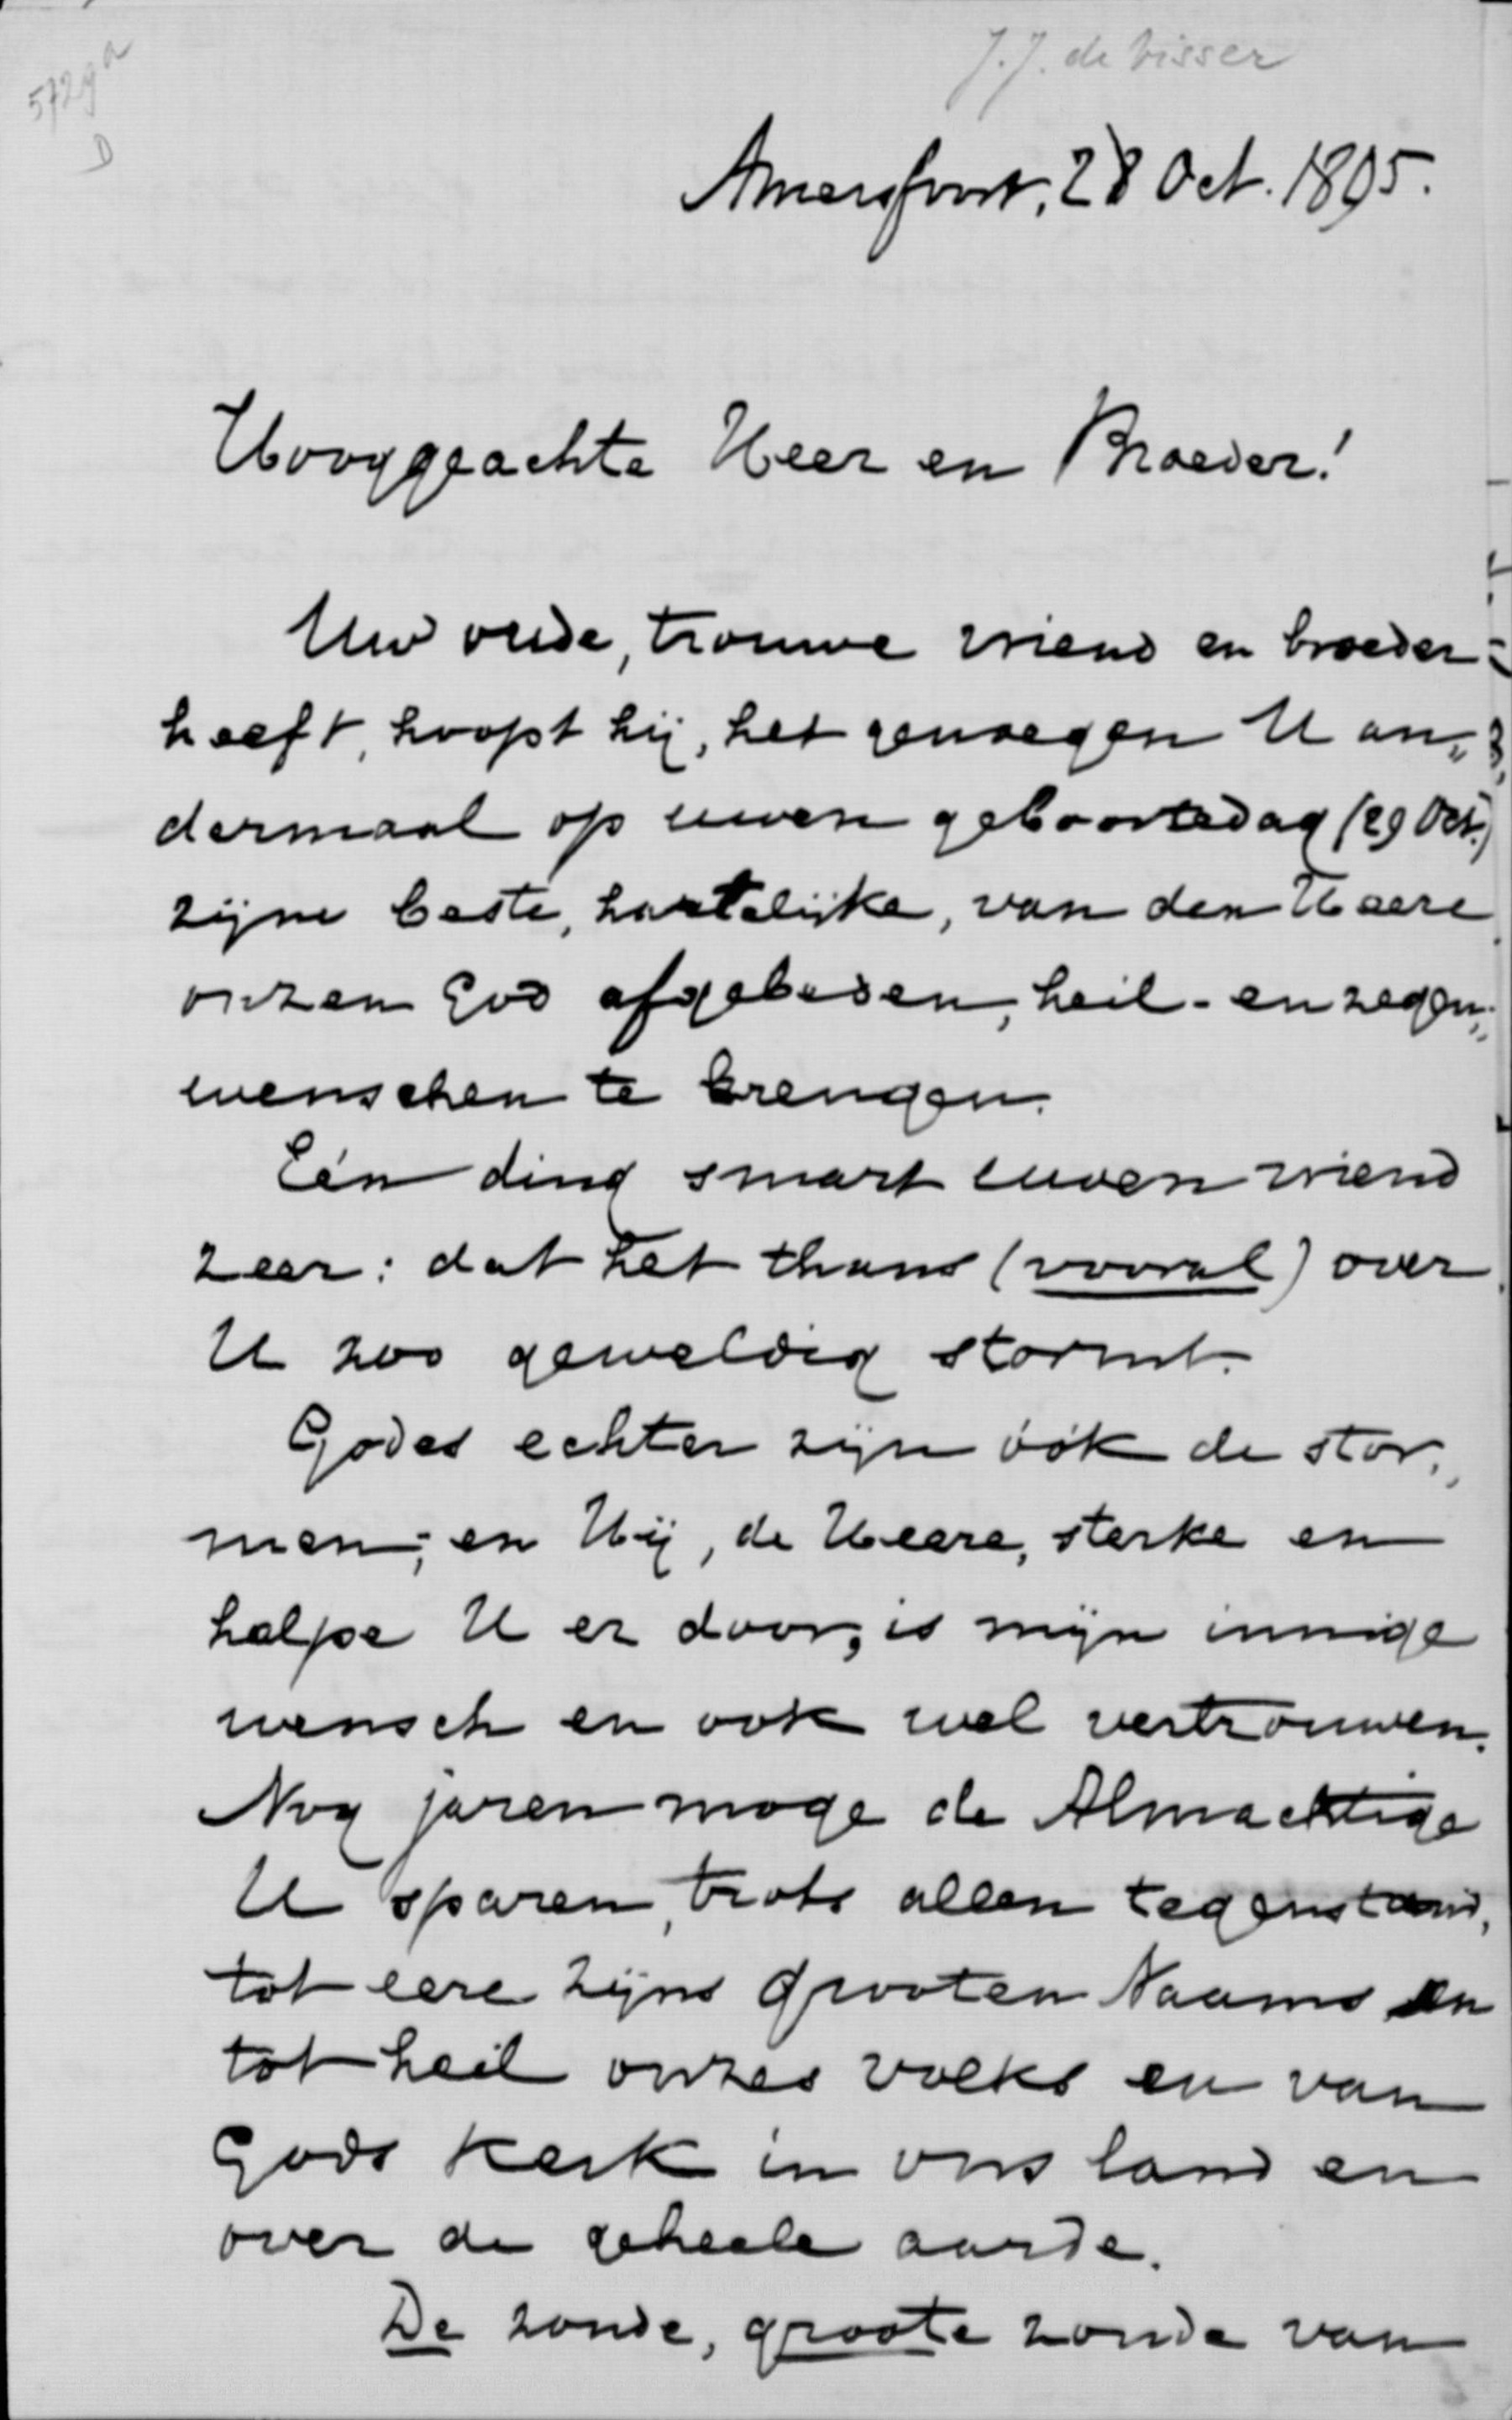 5729a
D
J. J. de Visser
Amersfoort, 28 Oct. 1895.
Hooggeachte Heer en Broeder!
Uw oude, trouwe vriend en broeder
heeft, hoopt hij, het genoegen U an„
dermaal op uwen geboortedag (29 Oct.)
zijne beste, hartelijke, van den Heere
onzen God afgebeden, heil- en zegen„
wenschen te brengen.
Eén ding smart uwen vriend
zeer: dat het thans (vooral) over
U zoo geweldig stormt.
Godes echter zijn óók de stor„
men; en Hij, de Heere, sterke en
helpe U er door, is mijn innige
wensch en ook wel vertrouwen.
Nog jaren moge de Almachtige
U sparen, trots allen tegenstand,
tot eere zijns grooten Naams en
tot heil onzes volks en van
Gods Kerk in ons land en
over de geheele aarde.
De zonde, groote zonde van